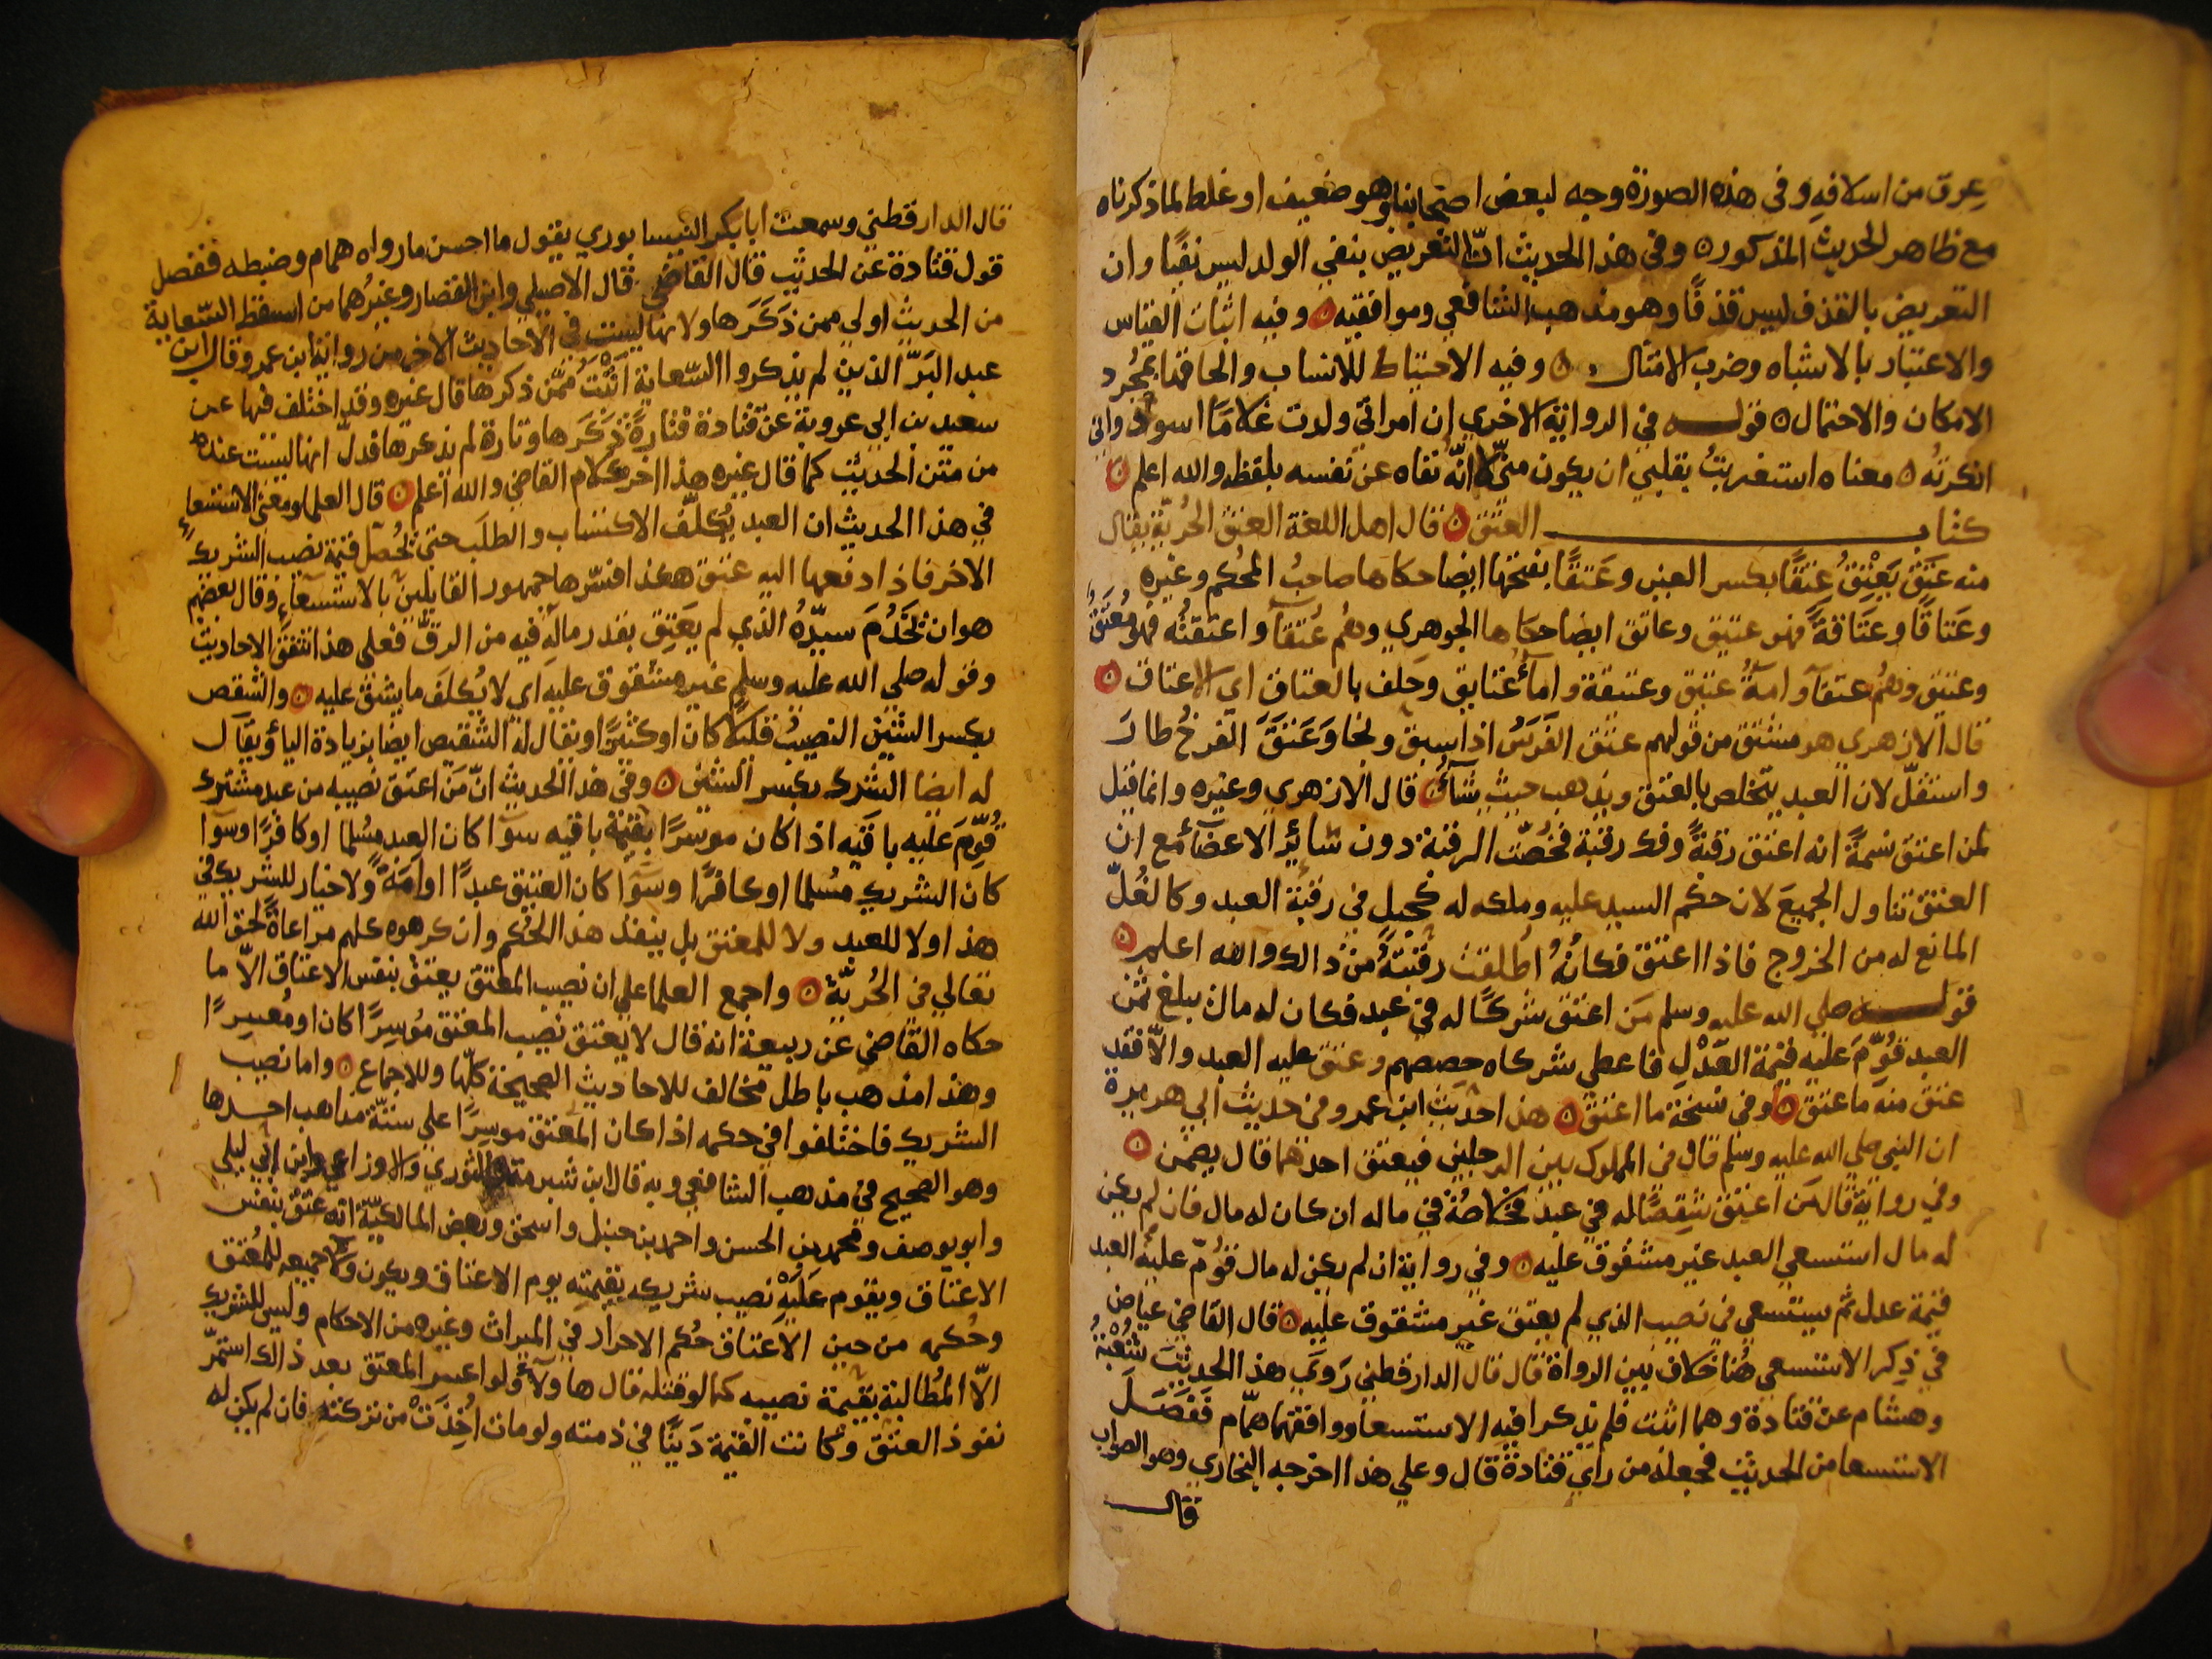 عِرق من اسلافه وفي هذه الصورة وجه لبعض اصحابنا وهو ضعيف او غلط لما ذكرناه
مع ظاهر الحديث المذكور ٥ وفي هذا الحديث انّ التعريض بنفي الولد ليس نفيًا وان
التعريض بالقذف ليس قذفًا وهو مذهب الشافعي وموافقيه ٥ وفيه اثبات القياس
والاعتبار بالاشباه وضرب الامثال ٥ وفيه الاحتياط للانساب والحاقها بمجُرد
الامكان والاحتمال ٥ قولـــه في الرواية الاخري ان امراتي ولدت غلامًا اسود واني
انكرتُه ٥ معناه استغربتُ بقلبي ان يكون منيّ لا انّه نفاه عن نفسه بلفظه والله اعلم ٥
كتابـــــ العتق ٥ قال اهل اللغة العتق الحُريّة يقال
منه عَتَق يَعْتِقُ عِتقًا بكسر العين وعَتقًا بفتحها ايضا حكاها صاحبُ المحُكم وغيره
وعَتاقًا وعَتَاقةً فهو عتيق وعاتق ايضا حكاها الجوهري وهُم عُتَقآ واعتقتُه فهو مُعتَقٌ
وعتيق وهُم عتقآ وامَةٌ عتيق وعتيقة وامآٌ عتايق وحَلف بالعتاق اي الاعتاق ٥
قال الازهري هو مشتق من قولهم عتق الفَرَسُ اذا سبق ونجا وَعَتَقَ الفرخُ طار
واستقلّ لان العبد يتخلص بالعتق ويذهب حيث شآءَ ٥ قال الازهري وغيره وانما قيل
لمن اعتق نسمةً انه اعتق رقبةً وفك رقبة فخُصّت الرقبة دون سائِر الاعضآء مع ان
العتق تناول الجميعَ لان حكم السيد عليه وملكه له كحبلٍ في رقبة العبد وكالغُلّ
المانع له من الخروج فاذا اعتق فكانّهُ اُطلقت رقبتهُ من ذالك والله اعلم ٥
قولـــه صلي الله عليه وسلم مَن اعتق شركًا له في عبد فكان له مال يبلغ ثمن
العبد قُوِّمَ عليه قيمة العَدْلِ فاعطي شركاه حصصهم وعتق عليه العبد والاّ فقد
عتق منه ما عتق ٥ وفي نسخة ما اعتق ٥ هذا حديث ابن عمر وفي حديث ابي هريرة
ان النبي صلي الله عليه وسلم قال في المملوك بين الرجلين فيعتق احدهما قال يضمن ٥
وفي رواية قال مَن اعتق شِقصًا له في عبد فخلاصُهُ في ماله ان كان له مال فان لم يكن
له مال استسعي العبد غير مشقوق عليه ٥ وفي رواية ان لم يكن له مال قُوّم عليه العبد
قيمة عدل ثم يستسعي في نصيب الذي لم يعتق غير مشقوق عليه ٥ قال القاضي عياض
في ذِكر الاستسعي هُنا خلاف بين الرواة قال قال الدارقطني رَوَي هذا الحديث شُعْبةُ
وهشام عن قتادة وهما اثبت فلم يذكرا فيه الاستسعا ووافقهما همّام فَفَصَلَ
الاستسعا من الحديث فجعله من راي قتادة قال وعلي هذا اخرجه البخاري وهو الصواب
قالـــ
قال الدارقطني وسمعت ابا بكر النيسابوري يقول ما احسن ما رواه همام وضبطه ففصل
قول قتادة عن الحديث قال القاضي قال الاصيلي وابن القصار وغيرُهما من اسقط السّعاية
من الحديث اولي ممن ذكَرَها ولانها ليست في الاحاديث الاخر من رواية ابن عمر وقال ابن
عبد البَرّ الذين لم يذكروا السّعاية اَثْبَتُ ممّن ذكرها قال غيره وقد اختلف فيها عن
سعيد بن ابي عروبة عن قتادة فتارةً ذكَرَها وتارة لم يذكرها فدلّ انها ليست عنده
من متن الحديث كما قال غيره هذا اخر كلام القاضي والله اعلم ٥ قال العلما ومعني الاستسعاءِ
في هذا الحديث ان العبد يُكلّف الاكتساب والطلَب حتي تحُصل قيمة نصيب الشريك
الاخر فاذا دفعها اليه عتق هكذا فسّرها جمهور القايلين بالاستسعآءِ وقال بعضهم
هو ان يَخْدُمَ سيدّهُ الذي لم يَعتِق بقدر ماله فيه من الرقّ فعلي هذا تتفق الاحاديث
وقوله صلي الله عليه وسلم غير مشقوق عليه اي لا يُكلَف ما يشق عليه ٥ والشقص
بكسر الشين النصيبُ قليلًا كان او كثيرًا ويقال له الشقيص ايضا بزيادة الياء ويقال
له ايضا الشرك بكسر الشين ٥ وفي هذا الحديث انّ مَن اعتق نصيبه من عبد مشترك
قُوِّمَ عليه باقيه اذا كان موسرًا بقيمة باقيه سوآ كان العبد مسُلما او كافرًا وسوآ
كان الشريك مسُلما او كافرًا وسوآ كان العتيق عبدًا او اَمَةً ولا خيار للشريك في
هذا ولا للعبد ولا للمعتق بل ينفذ هذا الحُكم وان كرهوه كلهم مراعاةً لحق الله
تعالي في الحُريّة ٥ واجمع العلما علي ان نصيب المعتق يعتق بنفس الاعتاق الاّ ما
حكاه القاضي عن ربيعة انه قال لا يعتق نصيب المعتق مُوسِرًا كان او مُعسِرًا
وهذا مذهب باطل مخالف للاحاديث الصحيحة كلّها وللاجماع ٥ واما نصيب
الشريك فاختلفوا في حكمه اذا كان المعتق موسِرًا علي ستّة مذاهب احدها
وهو الصحيح في مذهب الشافعي وبه قال ابن شبرمة والثوري والاوزاعي وابن ابي ليلي
وابو يوصف ومحمد بن الحسن واحمد بن حنبل واسحق وبعض المالكيّة انّه عَتق بنفس
الاعتاق ويقوم عَلَيْهِ نصيب شريكه بقيمته يوم الاعتاق ويكون ولآ جميعه للمُعتق
وحُكمه من حين الاعتاق حُكم الاحرار في الميراث وغيره من الاحكام وليس للشريك
الاّ المُطالبة بقيمة نصيبه كما لو قتله قال هاولآءِ ولو اعسر المعتق بعد ذالك استمّر
نفوذ العتق وكانت القيمة دَينًا في ذمته ولو مات اُخِذَتْ من تركته فان لم يكن له